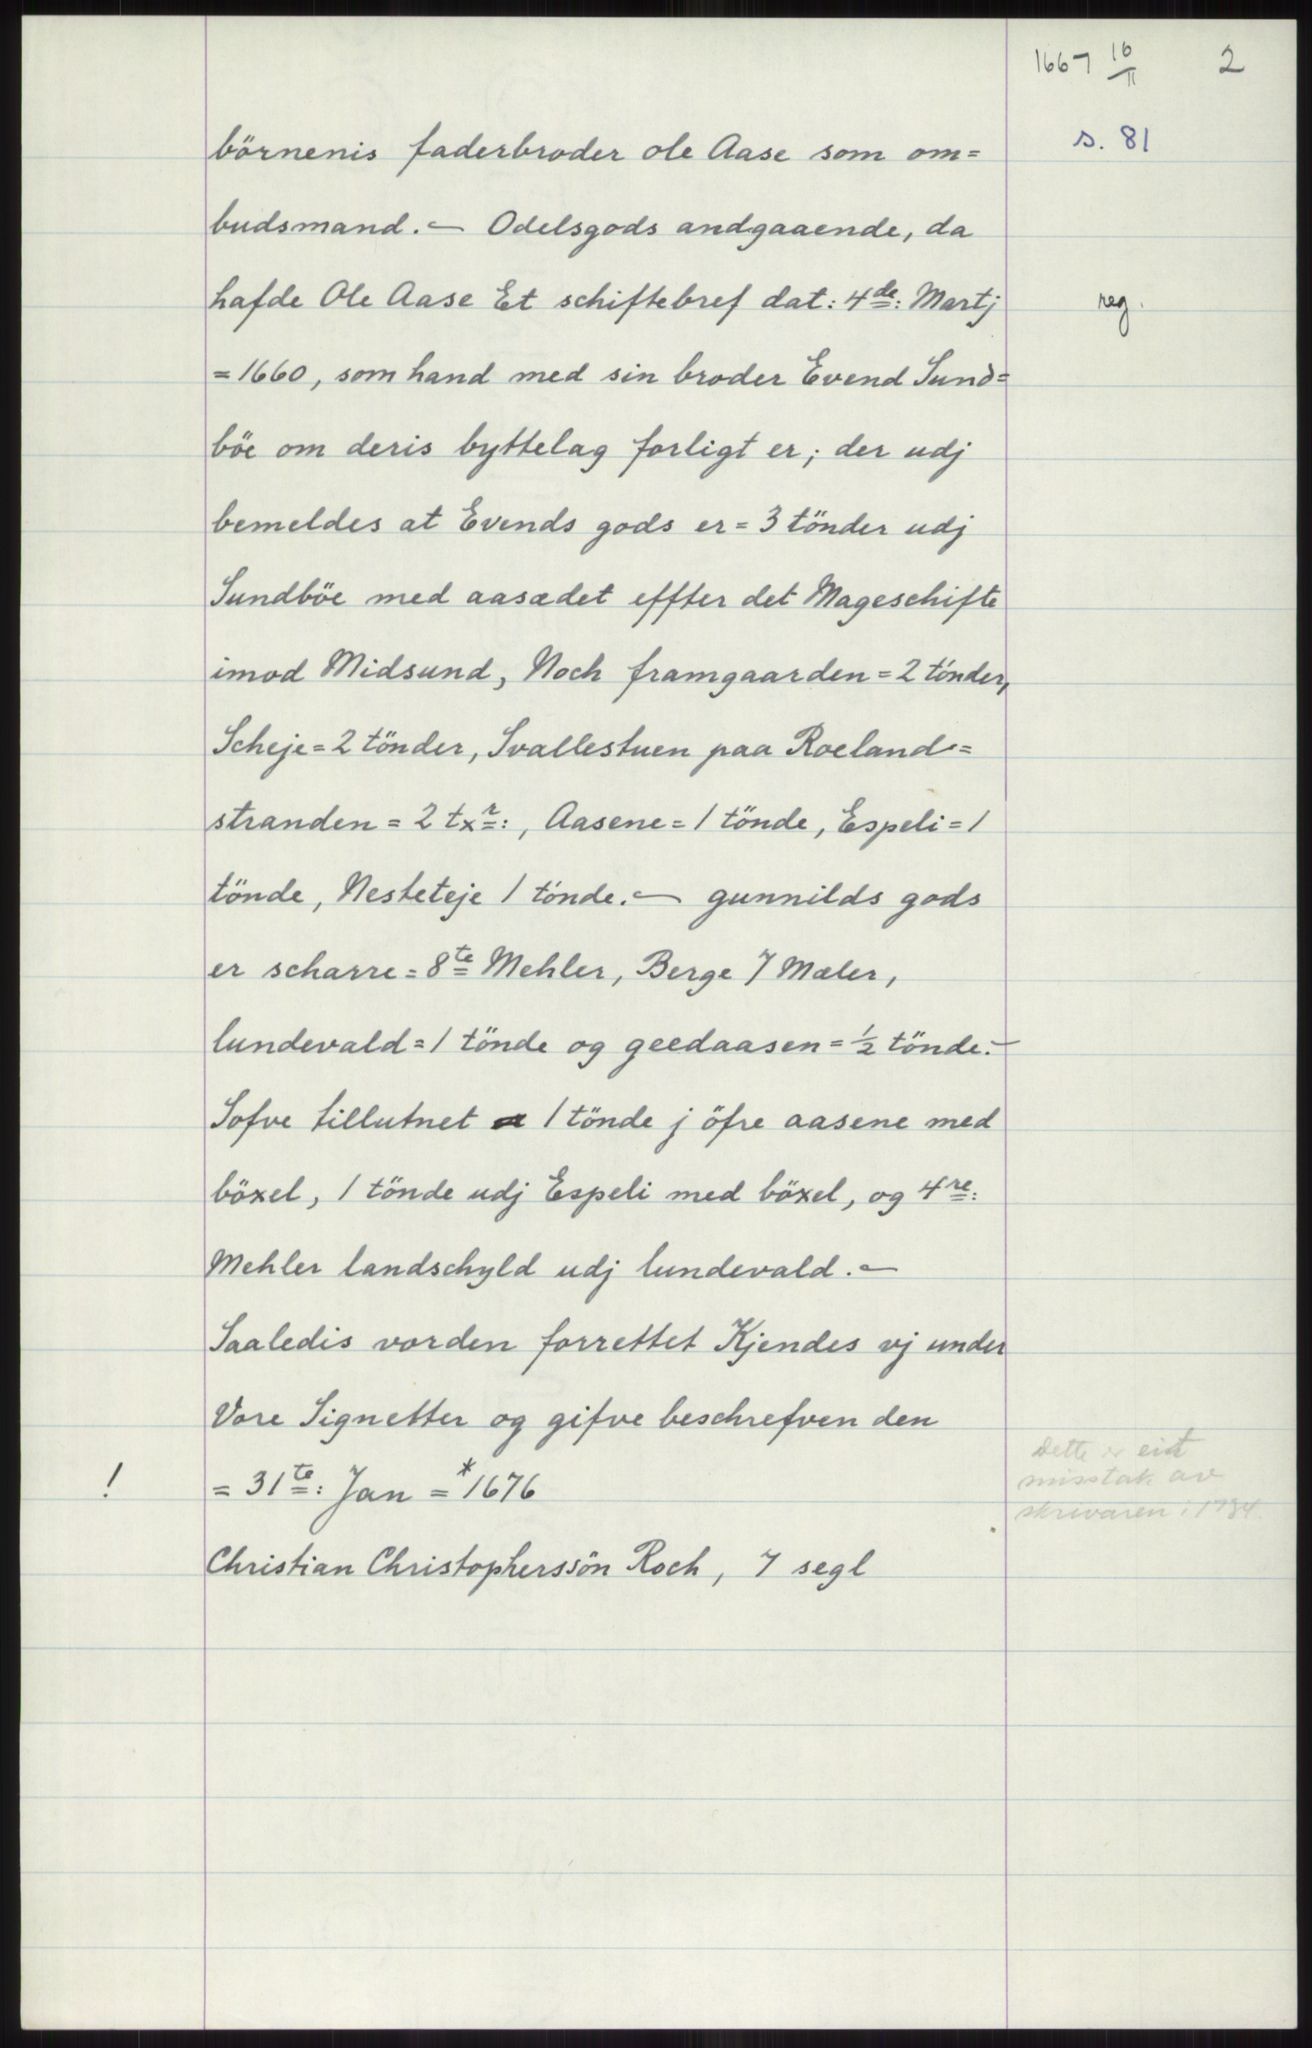 1667 16/11 2
s. 81
börnenis faderbroder ole Aase som om=
budsmand. — Odelsgods andgaaende, da
hafde Ole Aase Et schiftebref dat: 4de: Martj
reg.
= 1660, som hand med sin broder Evend Sund=
böe om deris byttelag forligt er; der udj
bemeldes at Evends gods er = 3 tönder udj
Sundböe med aasædet effter det Mageschifte
imod Midsund, Noch framgaarden = 2 tönder,
Scheje = 2 tönder, Svallestuen paa Roeland=
stranden = 2 txr:, Aasene = 1 tönde, Espeli = 1
tönde, Nesteteje 1 tönde. — gunnilds gods
er scharre = 8te Mehler, Berge 7 Mæler,
lundevald = 1 tönde og geedaasen = ½ tönde. —
Sofve tillutnet 1 tönde j öfre aasene med
böxel, 1 tönde udj Espeli med böxel, og 4re:
Mehler landschyld udj lundevald. —
Saaledis vorden forrettet Kjendes vj under
Vore Signetter og gifve beschrefven den
! = 31te: Jan = *1676
Dette er eit
misstak av
skrivaren i 1734.
Christian Christopherssön Roch, 7 segl